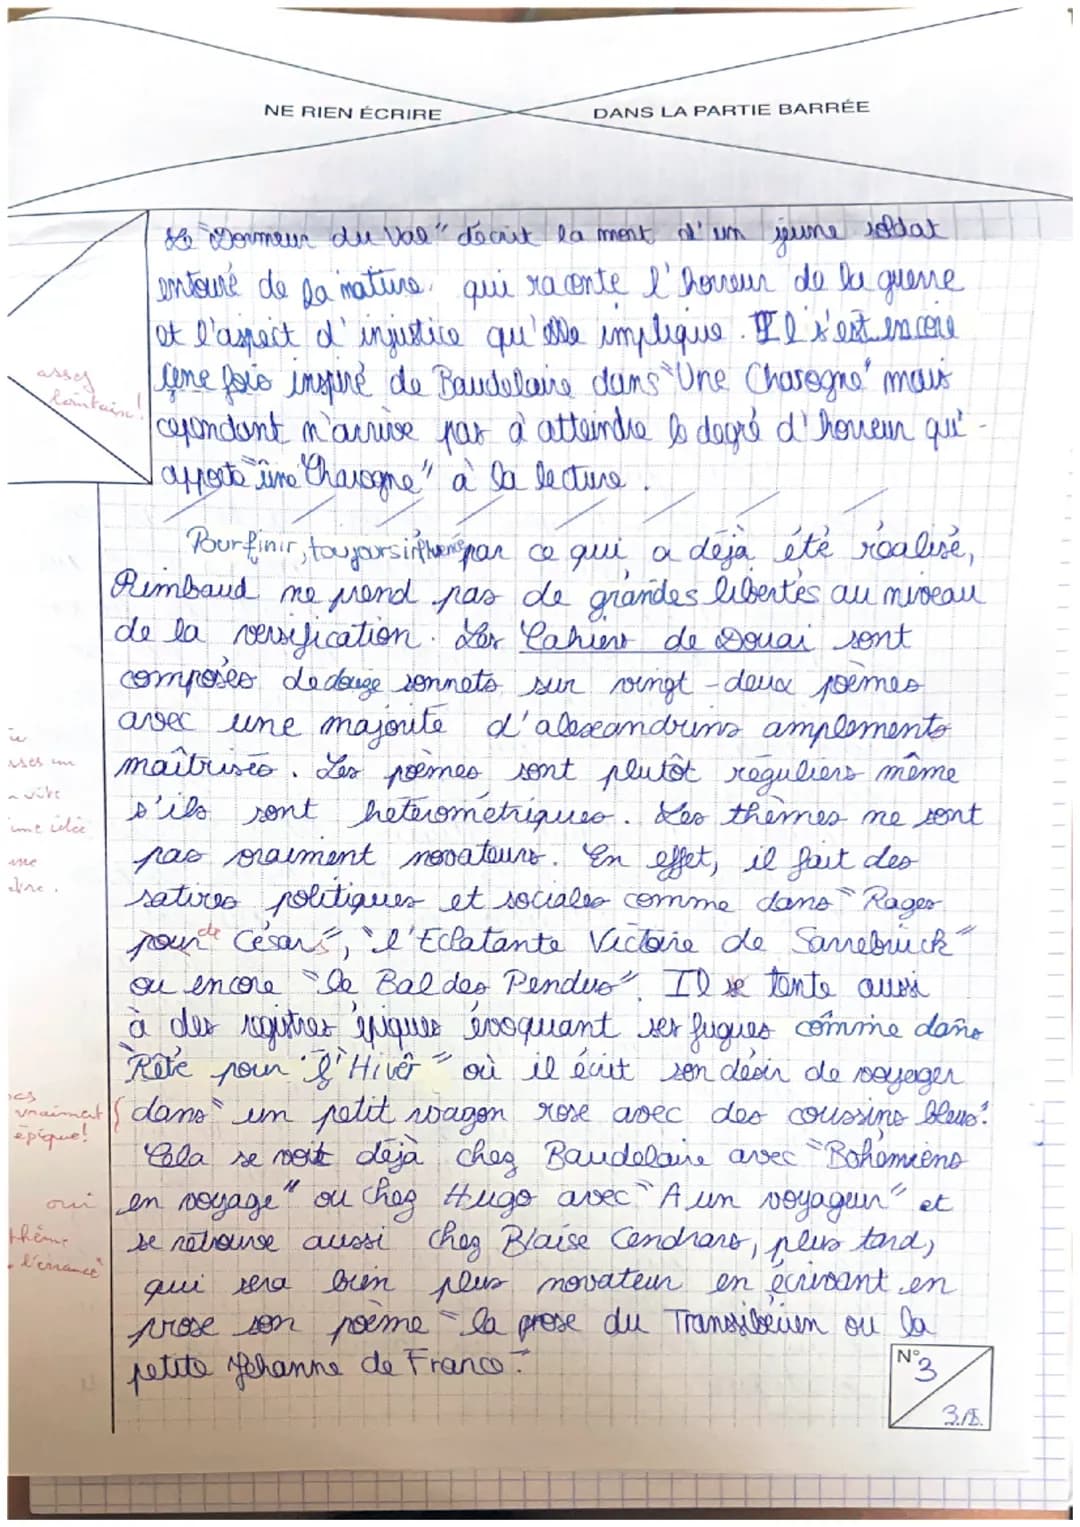 NE RIEN ÉCRIRE DANS LA PARTIE BARRÉE
Le "Dormeur du Val" décrit la mort d'un jeune soldat
entouré de la nature, qui raconte l'horreur de la guerre
et l'aspect d'injustice qu'elle implique. Il s'est encore
assez
lointain!
une fois inspiré de Baudelaire dans "Une Charogne" mais
cependant n'arrive pas à atteindre le degré d'horreur qu'-
apporte "une Charogne" à la lecture.
Pour finir, toujours influencé par ce qui a déjà été réalisé,
Rimbaud ne prend pas de grandes libertés au niveau
de la versification. Les Cahiers de Douai sont
composés de douze sonnets sur vingt-deux poèmes
avec une majorité d'alexandrins amplements
maîtrisés. Les poèmes sont plutôt réguliers même
s'ils sont hétérométriques. Les thèmes ne sont
vite
une idée
pas vraiment novateurs. En effet, il fait des
satires politiques et sociales comme dans "Rages
pour de Césars", "l'Eclatante Victoire de Sarrebrück"
ou encore "le Bal des Pendus". Il se tente aussi
à des registres épiques évoquant ses fugues comme dans
"Rêvé pour l'Hivêr" où il écrit son désir de voyager
pas
vraiment
épique!
dans "un petit wagon rose avec des coussins bleus".
Cela se voit déjà chez Baudelaire avec "Bohémiens
en voyage" ou chez Hugo avec "A un voyageur" et
oui
thème
l'errance
se retrouve aussi chez Blaise Cendrars, plus tard,
qui sera bien plus novateur en écrivant en
prose son poème "la prose du Transsibérien ou la
petite Jehanne de France".
N°
3
3.